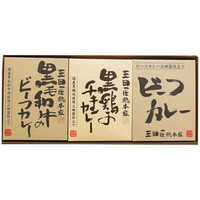 三田屋総本家
黒毛和牛の
ビーフカレー
三田屋総本家
黒鶏の
チキンカレー
ビーフ
カレー
三田屋総本家